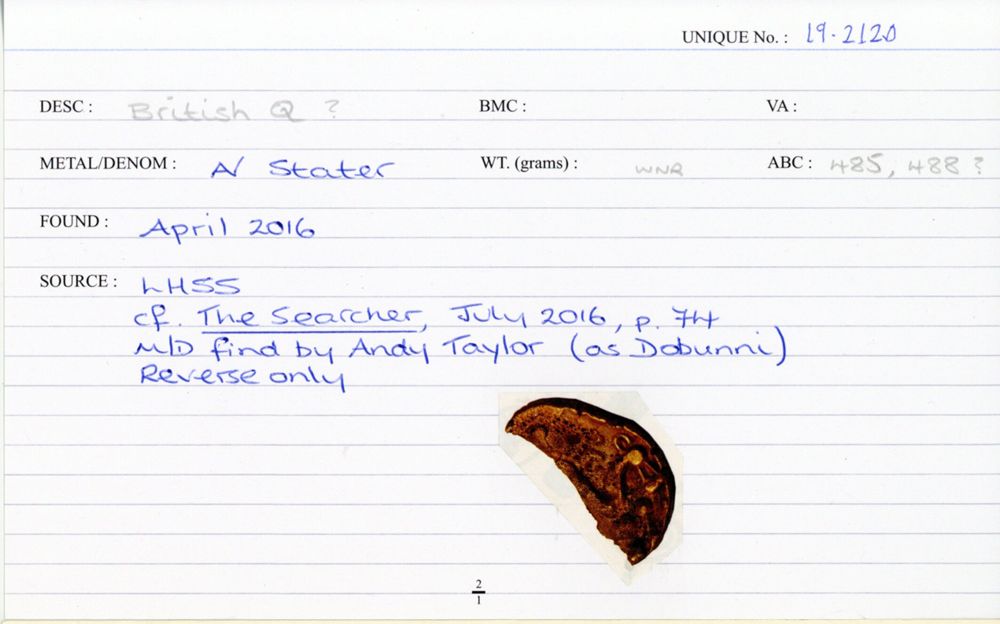 UNIQUE No. : 19.2120
DESC : British Q ? BMC : VA :
METAL/DENOM : A/ Stater WT. (grams) : WNR ABC : 485, 488 ?
FOUND : April 2016
SOURCE : LHSS
cf. The Searcher, July 2016, p. 74
M/D find by Andy Taylor (as Dobunni)
Reverse only
2
1